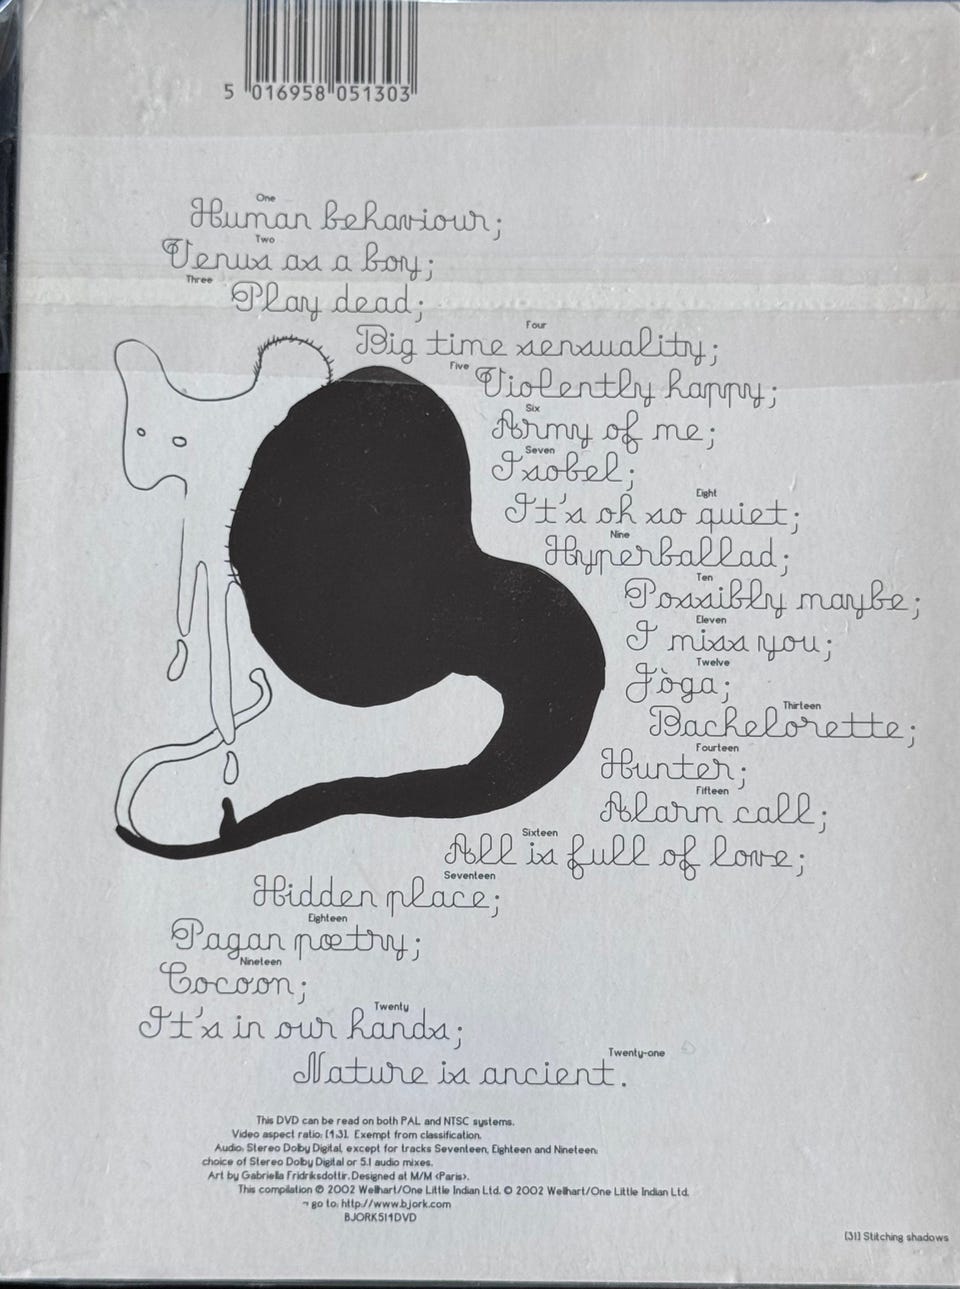 5 016958 051303
One
Human behaviour;
Two
Venus as a boy;
Three
Play dead;
Four
Big time sensuality;
Five
Violently happy;
Six
Army of me;
Seven
Isobel;
Eight
It's oh so quiet;
Nine
Hyperballad;
Ten
Possibly maybe;
Eleven
I miss you;
Twelve
Jòga;
Thirteen
Bachelorette;
Fourteen
Hunter;
Fifteen
Alarm call;
Sixteen
All is full of love;
Seventeen
Hidden place;
Eighteen
Pagan pœtry;
Nineteen
Cocoon;
Twenty
It's in our hands;
Twenty-one
Nature is ancient.
This DVD can be read on both PAL and NTSC systems.
Video aspect ratio: [4:3]. Exempt from classification.
Audio: Stereo Dolby Digital, except for tracks Seventeen, Eighteen and Nineteen:
choice of Stereo Dolby Digital or 5.1 audio mixes.
Art by Gabríella Fridriksdottir. Designed at M/M <Paris>.
This compilation ℗ 2002 Wellhart/One Little Indian Ltd. © 2002 Wellhart/One Little Indian Ltd.
¬ go to: http://www.bjork.com
BJORK511DVD
[31] Stitching shadows